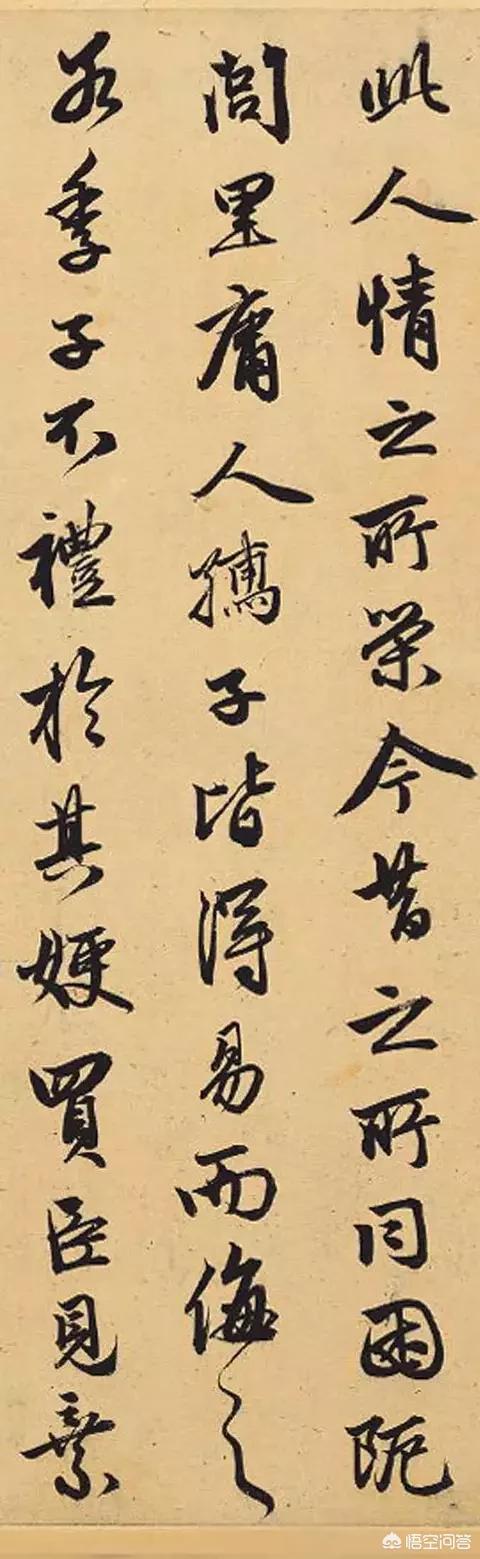 此人情之所榮今昔之所同困阨
閭里庸人孺子皆得易而侮之
若季子不禮於其嫂買臣見棄
悟空问答